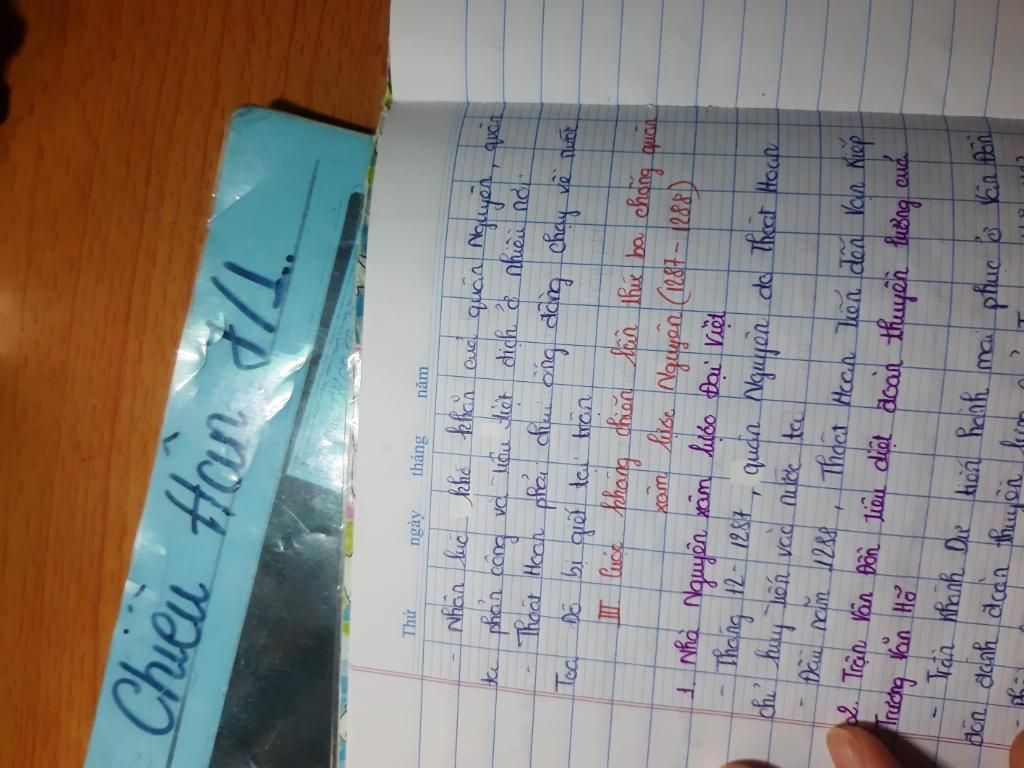 Chiều Hân 7/1..
Thứ ngày tháng năm
- Nhân lúc khó khăn của quân Nguyên, quân
ta phản công và tiêu diệt địch ở nhiều nơi.
- Thoát Hoan phải chui ống đồng chạy về nước
Toa Đô bị giết tại trận
III. Cuộc kháng chiến lần thứ ba chống quân
xâm lược Nguyên (1287 - 1288)
1. Nhà Nguyên xâm lược Đại Việt
- Tháng 12 - 1287, quân Nguyên do Thoát Hoan
chỉ huy tiến vào nước ta
- Đầu năm 1288, Thoát Hoan tiến đến Vạn Kiếp
2. Trận Vân Đồn tiêu diệt đoàn thuyền lương của
Trương Văn Hổ
- Trần Khánh Dư tiến hành mai phục ở Vân Đồn
đón đánh đoàn thuyền lương